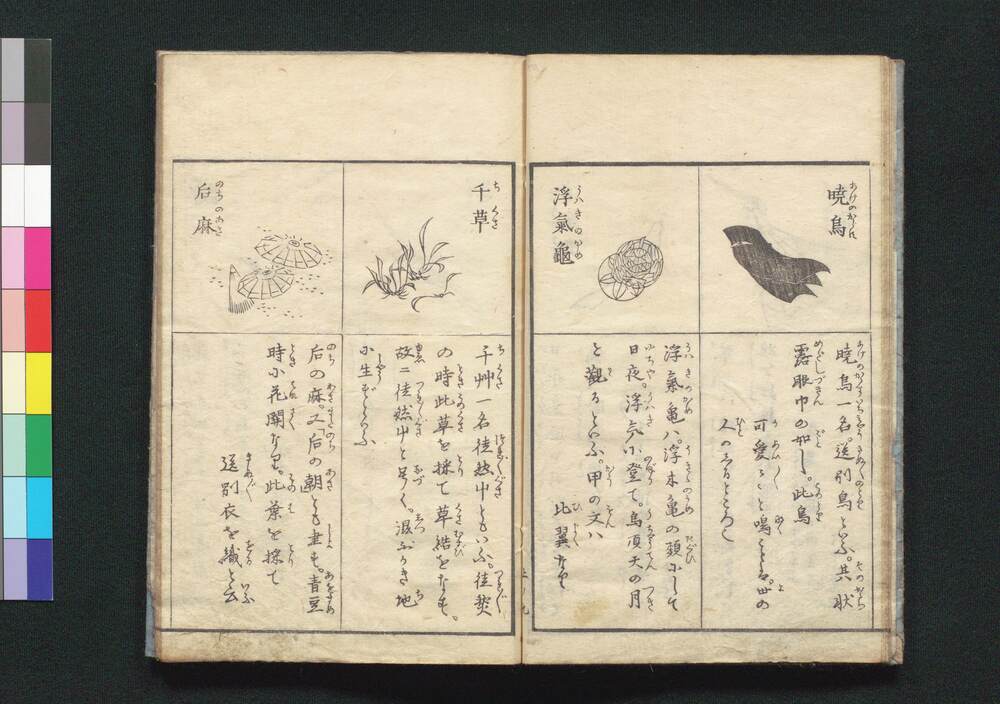 暁烏
暁烏一名。送別烏といふ。其状
露眼巾の如し。此烏
可愛〻と鳴とぞ。世の
人のしるところ也
浮氣龜
浮氣亀ハ。浮木亀の類にして
日夜。浮気に登て。烏頂天の月
を觀るといふ。甲の文ハ
比翼なり
千草
千艸一名徒然艸ともいふ。徒然
の時此草を採て草結をなす。
故ニ徒然艸と号く。濕ふかき地
に生ずといふ
后麻
后の麻。又「后の朝」とも書す。青豆
時に花開なり。此葉を採て
送別衣を織と云